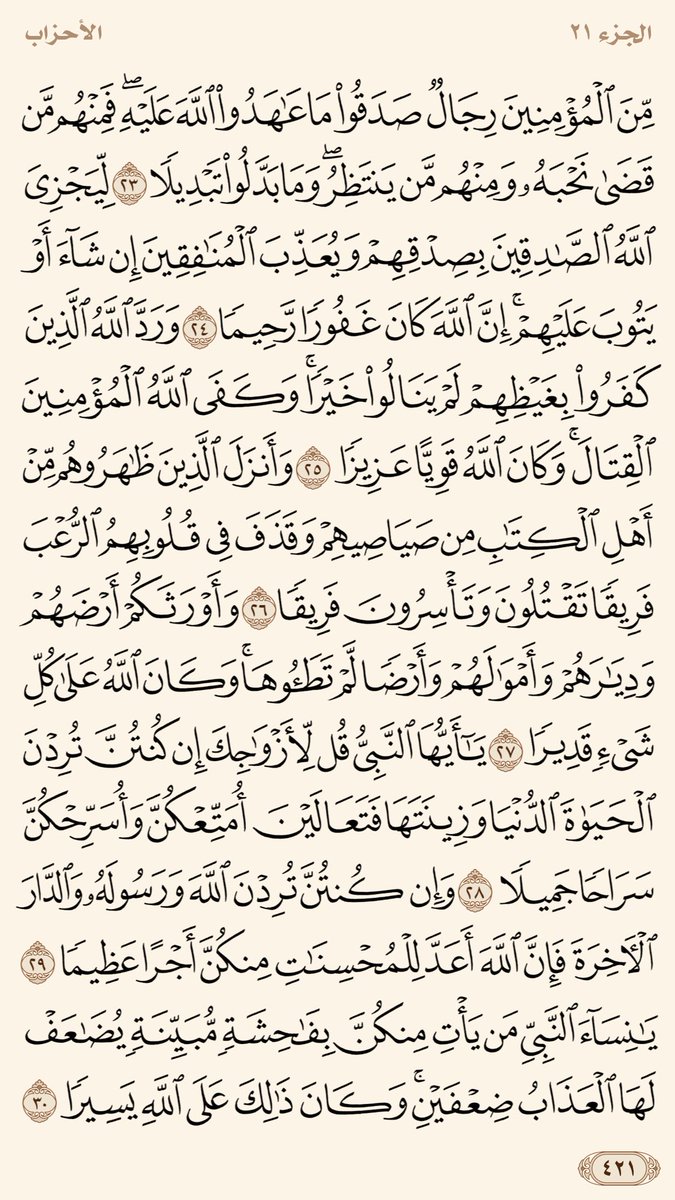 الجزء ٢١
الأحزاب
مِّنَ ٱلۡمُؤۡمِنِينَ رِجَالٞ صَدَقُواْ مَا عَٰهَدُواْ ٱللَّهَ عَلَيۡهِۖ فَمِنۡهُم مَّن
قَضَىٰ نَحۡبَهُۥ وَمِنۡهُم مَّن يَنتَظِرُۖ وَمَا بَدَّلُواْ تَبۡدِيلٗا ٢٣ لِّيَجۡزِيَ
ٱللَّهُ ٱلصَّٰدِقِينَ بِصِدۡقِهِمۡ وَيُعَذِّبَ ٱلۡمُنَٰفِقِينَ إِن شَآءَ أَوۡ
يَتُوبَ عَلَيۡهِمۡۚ إِنَّ ٱللَّهَ كَانَ غَفُورٗا رَّحِيمٗا ٢٤ وَرَدَّ ٱللَّهُ ٱلَّذِينَ
كَفَرُواْ بِغَيۡظِهِمۡ لَمۡ يَنَالُواْ خَيۡرٗاۚ وَكَفَى ٱللَّهُ ٱلۡمُؤۡمِنِينَ
ٱلۡقِتَالَۚ وَكَانَ ٱللَّهُ قَوِيًّا عَزِيزٗا ٢٥ وَأَنزَلَ ٱلَّذِينَ ظَٰهَرُوهُم مِّنۡ
أَهۡلِ ٱلۡكِتَٰبِ مِن صَيَاصِيهِمۡ وَقَذَفَ فِي قُلُوبِهِمُ ٱلرُّعۡبَ
فَرِيقٗا تَقۡتُلُونَ وَتَأۡسِرُونَ فَرِيقٗا ٢٦ وَأَوۡرَثَكُمۡ أَرۡضَهُمۡ
وَدِيَٰرَهُمۡ وَأَمۡوَٰلَهُمۡ وَأَرۡضٗا لَّمۡ تَطَـُٔوهَاۚ وَكَانَ ٱللَّهُ عَلَىٰ كُلِّ
شَيۡءٖ قَدِيرٗا ٢٧ يَٰٓأَيُّهَا ٱلنَّبِيُّ قُل لِّأَزۡوَٰجِكَ إِن كُنتُنَّ تُرِدۡنَ
ٱلۡحَيَوٰةَ ٱلدُّنۡيَا وَزِينَتَهَا فَتَعَالَيۡنَ أُمَتِّعۡكُنَّ وَأُسَرِّحۡكُنَّ
سَرَاحٗا جَمِيلٗا ٢٨ وَإِن كُنتُنَّ تُرِدۡنَ ٱللَّهَ وَرَسُولَهُۥ وَٱلدَّارَ
ٱلۡأٓخِرَةَ فَإِنَّ ٱللَّهَ أَعَدَّ لِلۡمُحۡسِنَٰتِ مِنكُنَّ أَجۡرًا عَظِيمٗا ٢٩
يَٰنِسَآءَ ٱلنَّبِيِّ مَن يَأۡتِ مِنكُنَّ بِفَٰحِشَةٖ مُّبَيِّنَةٖ يُضَٰعَفۡ
لَهَا ٱلۡعَذَابُ ضِعۡفَيۡنِۚ وَكَانَ ذَٰلِكَ عَلَى ٱللَّهِ يَسِيرٗا ٣٠
٤٢١